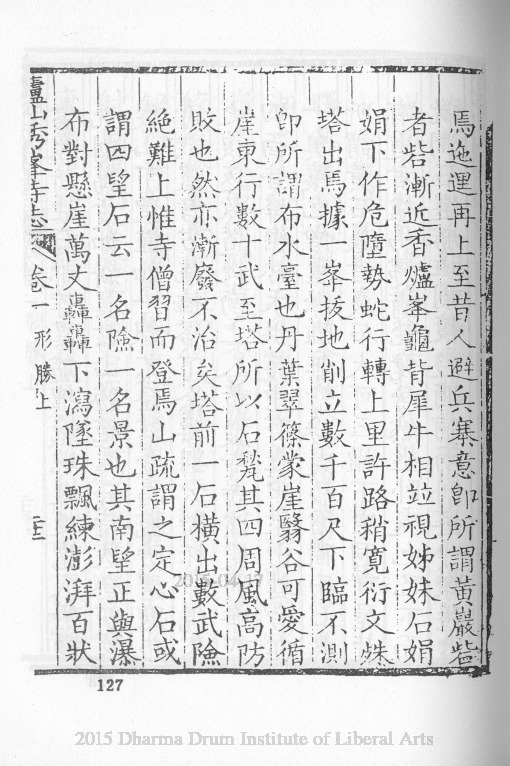 焉迤邐再上至昔人避兵寨意卽所謂黃巖砦
者砦漸近香爐峯龜背犀牛相竝視姊妹石娟
娟下作危墮勢蛇行轉上里許路稍寬衍文殊
塔出焉據一峯拔地削立數千百尺下臨不測
卽所謂布水臺也丹葉翠篠蒙崖翳谷可愛循
崖東行數十武至塔所以石甃其四周風高防
敗也然亦漸廢不治矣塔前一石橫出數武險
絕難上惟寺僧習而登焉山疏謂之定心石或
謂四望石云一名險一名景也其南壁正與瀑
布對懸崖萬丈轟轟下瀉墜珠飄練澎湃百狀
廬山秀峯寺志 卷一 形勝上 二十三
127
2015 Dharma Drum Institute of Liberal Arts